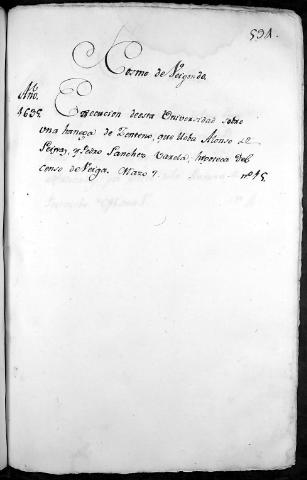 591.
Cosme de Veiganda
Año.
1635.
Execucion desta Universidad sobre
una hanega de Zenteno, que deba Alonso de
Seivas, y Pedro Sanchez Varela; hipoteca del
censo de Veiga. Mazo 7. nº 15.